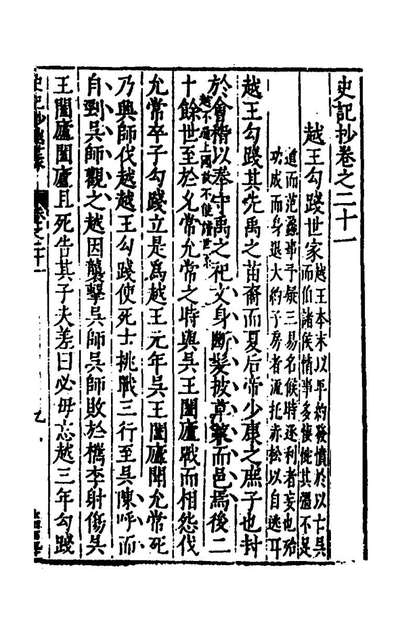 史記抄卷之二十一
越王勾踐世家
越王本末以早約發憤於以亡吳
而伯諸侯情事多慷慨其溫不足
道而范蠡事乎疑三易名候時逐利者妄也殆
功成而身退大約子房者流托赤松以自逃耳
越王勾踐其先禹之苗裔而夏后帝少康之庶子也封
於會稽以奉守禹之祀文身斷髮被草萊而邑焉後二
十餘世至於允常允常之時與吳王闔廬戰而相怨伐
允常卒子勾踐立是為越王元年吳王闔廬聞允常死
乃興師伐越越王勾踐使死士挑戰三行至吳陳呼而
自剄吳師觀之越因襲擊吳師吳師敗於檇李射傷吳
王闔廬闔廬且死告其子夫差曰必毋忘越三年勾踐